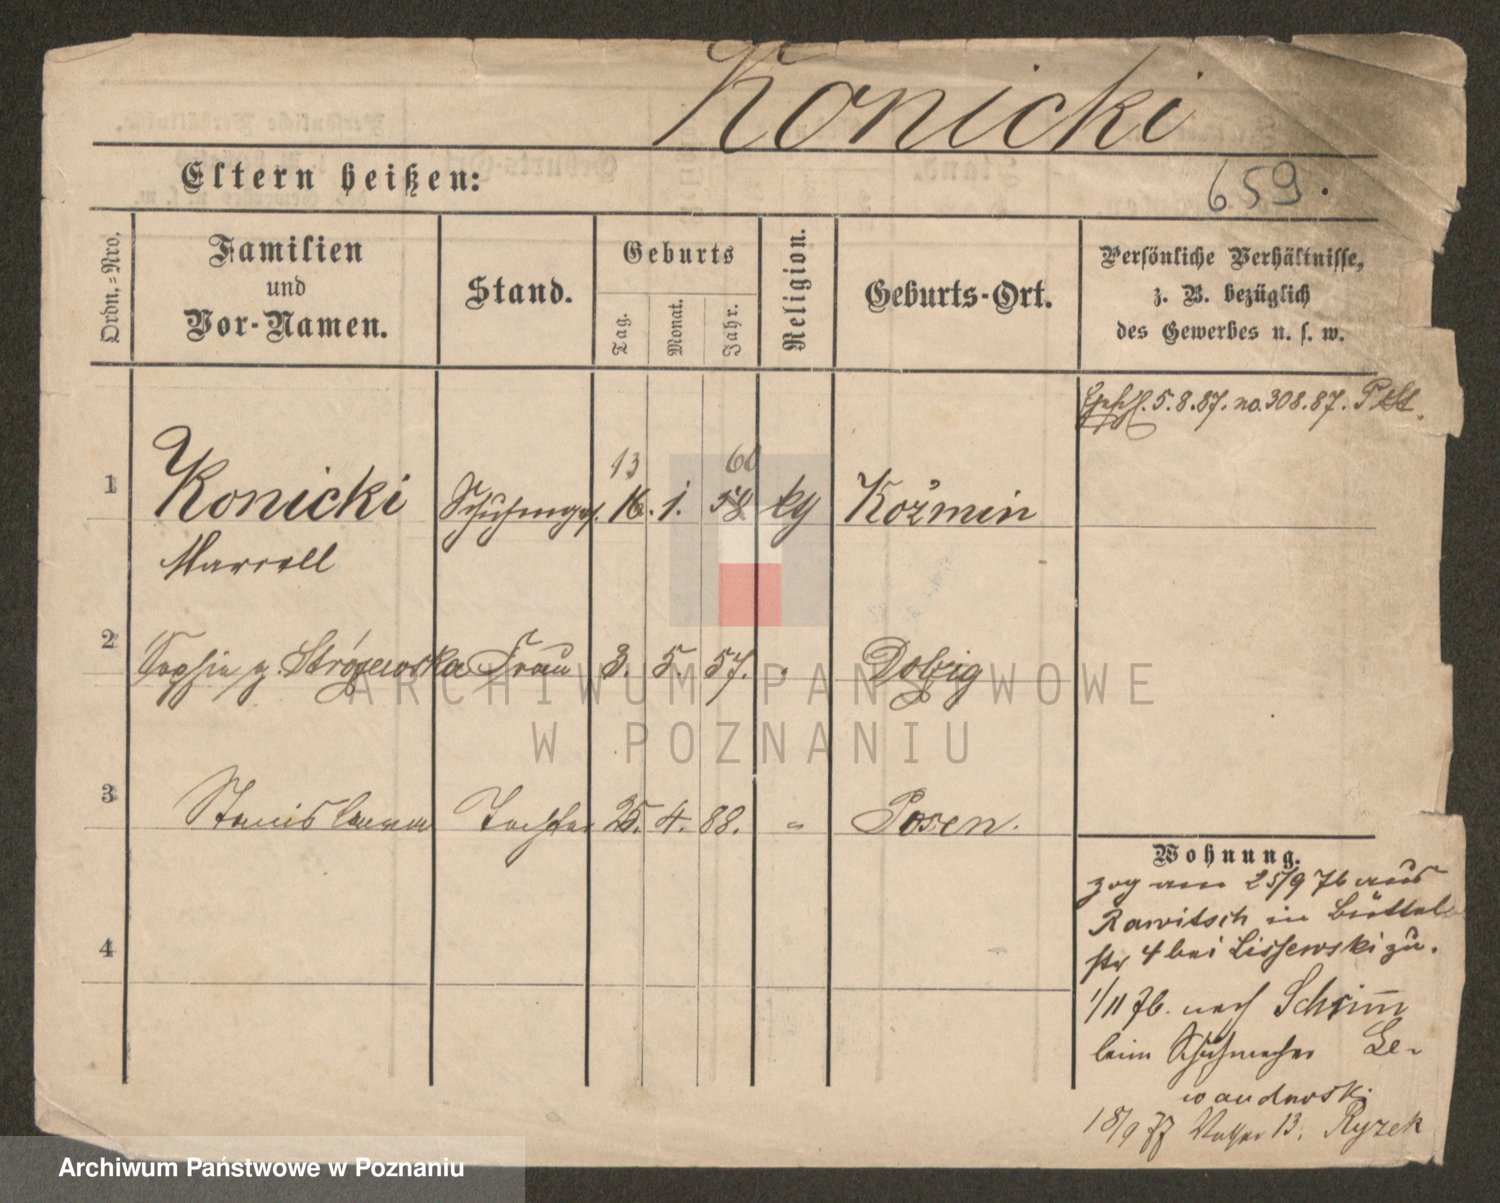 Konicki
659.
Eltern heißen:
Ordn.-Nro.
Familien
und
Vor-Namen.
Stand.
Geburts
Tag.
Monat.
Jahr.
Religion.
Geburts-Ort.
Persönliche Verhältnisse,
z. B. bezüglich
des Gewerbes u. s. w.
5.8.87. no. 308.87.
13 60
1 Konicki 16. 1. 58 Kożmin
Marcell
2 Sophie g. Stróżewska Frau 3. 5. 57. Dolzig
3 Stanislawa Tochter 25. 4. 88. " Posen.
4
Wohnung.
zog am 25/9 76 aus
Rawitsch in Büttel
str 4 bei Lissewski zu.
1/11 76. nach Schrimm
beim Schuhmacher Le-
wandowski
18/9 77 13. Ryzek
ARCHIWUM PAŃSTWOWE
W POZNANIU
Archiwum Państwowe w Poznaniu